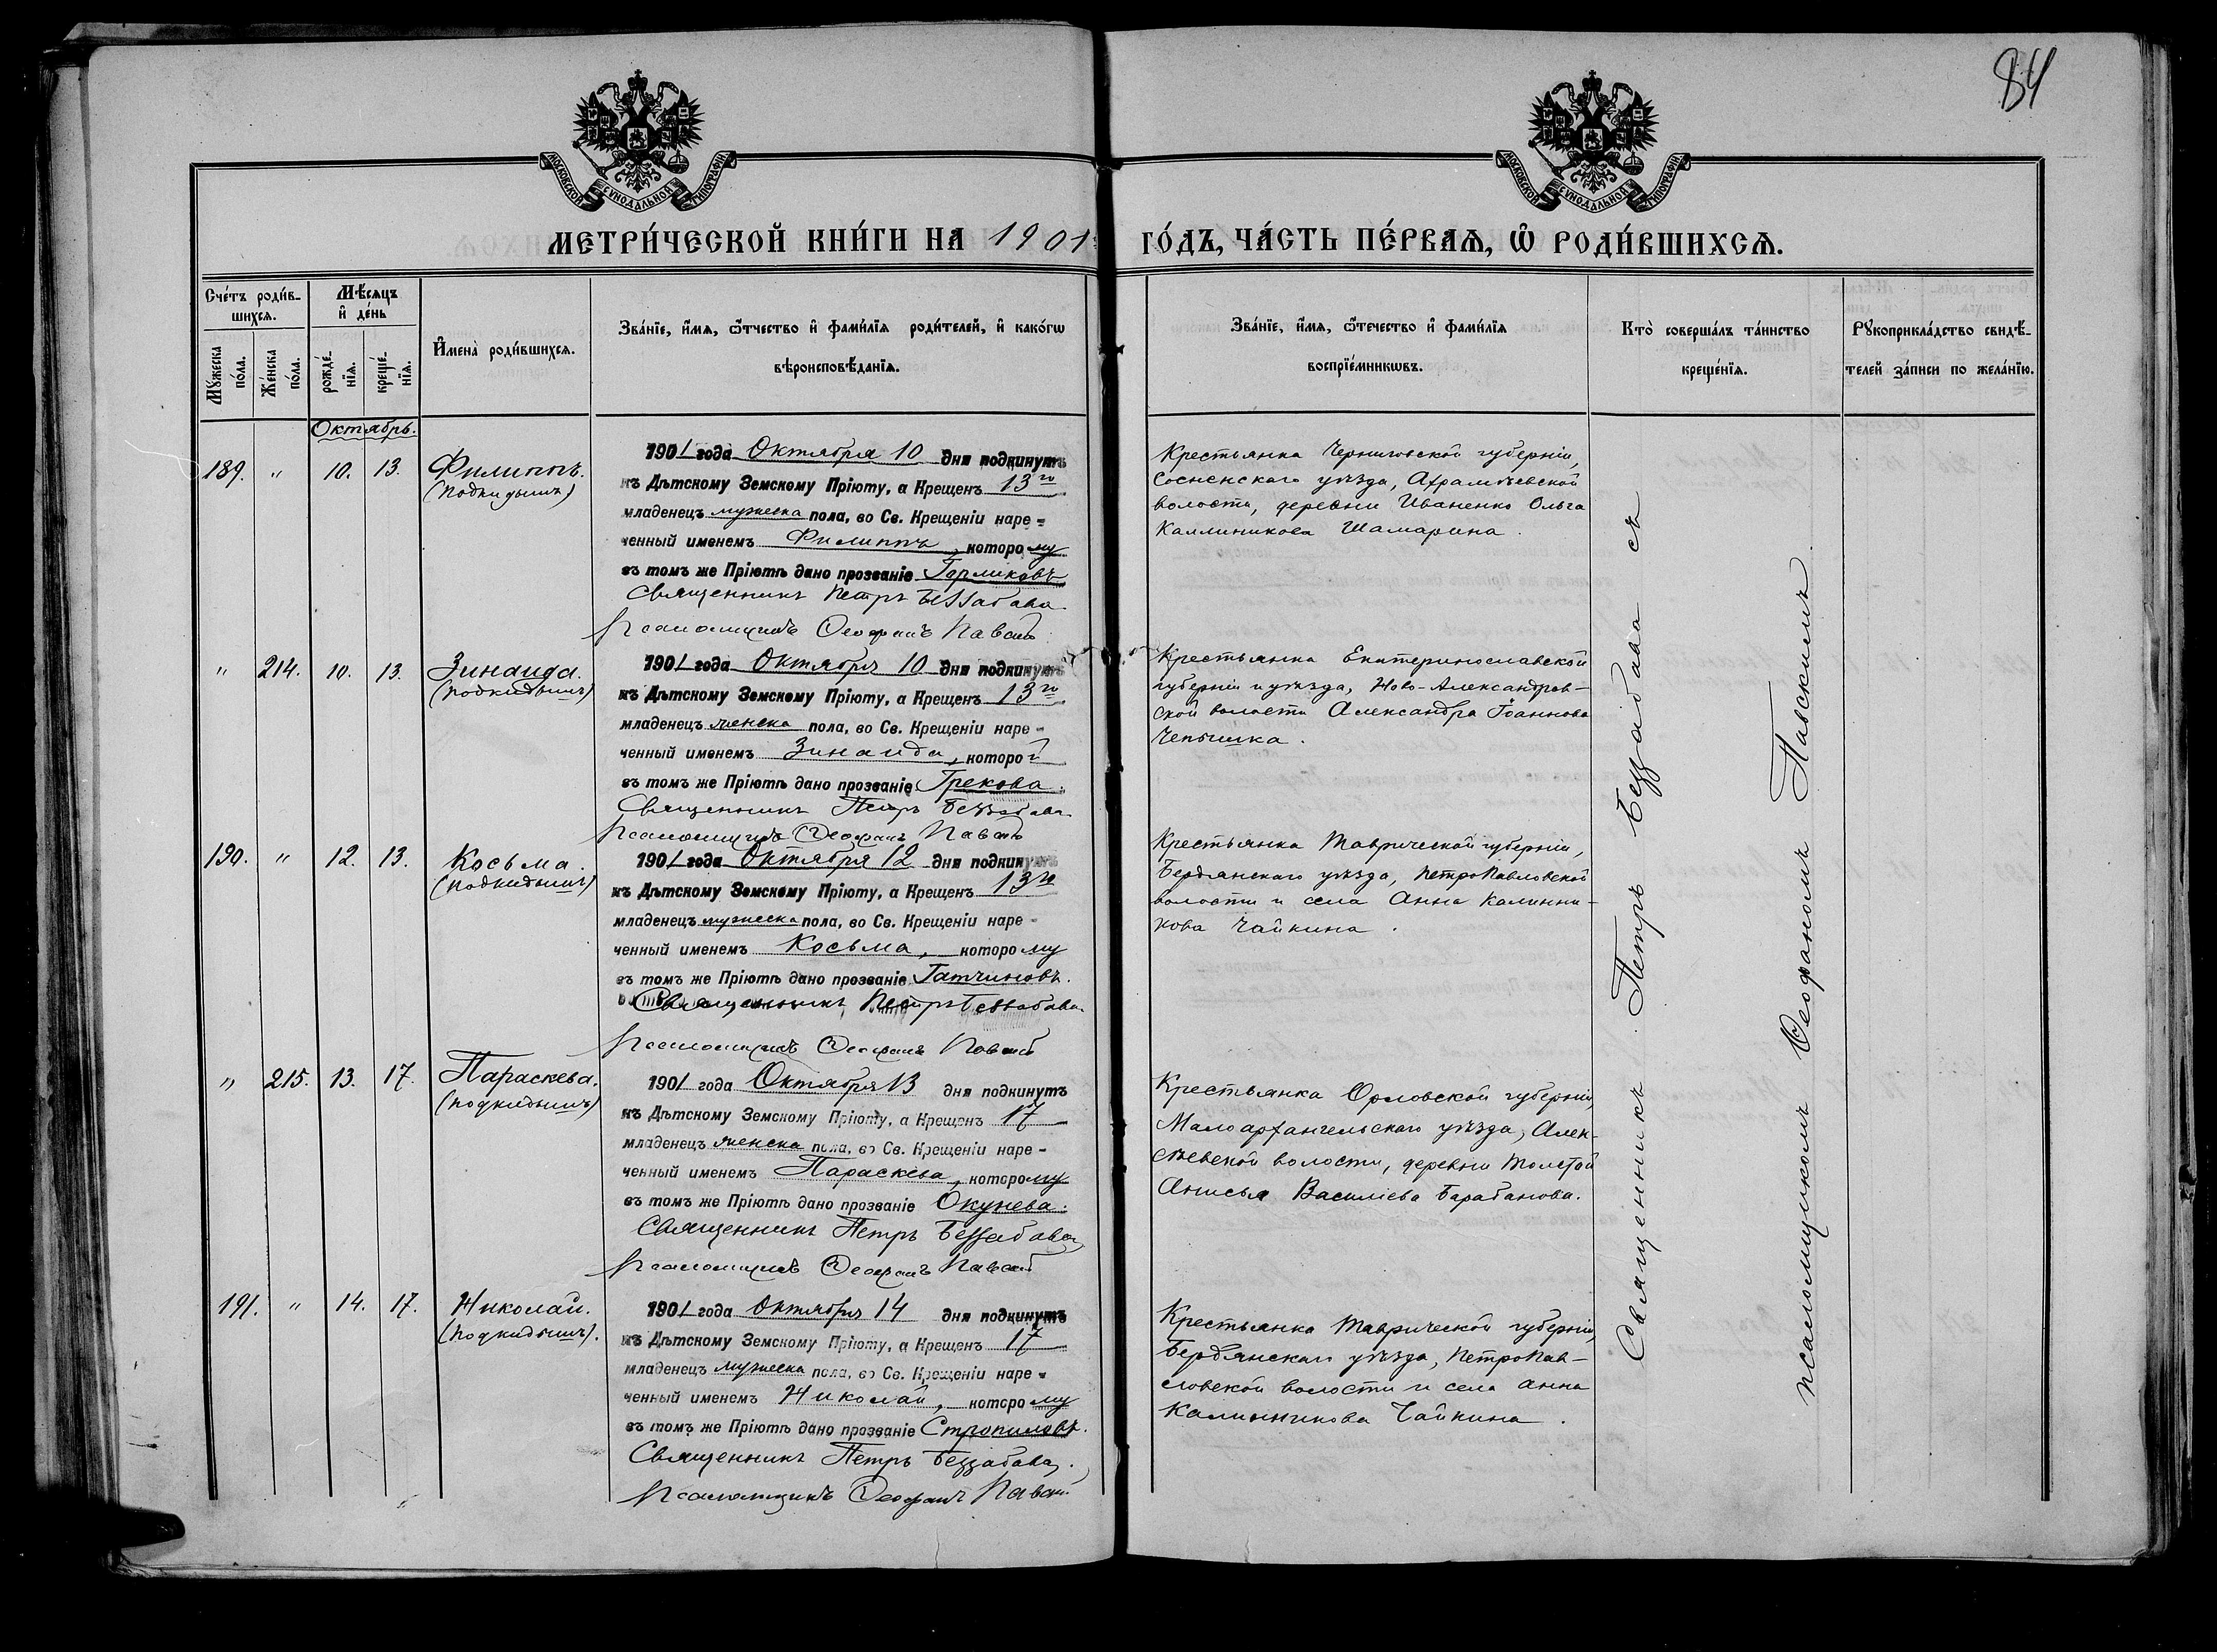 84
МОСКОВСКОЙ СУНОДАЛЬНОЙ ТИПОГРАФІИ
МОСКОВСКОЙ СУНОДАЛЬНОЙ ТИПОГРАФІИ
МЕТРИ́ЧЕСКОЙ КНИ́ГИ НА 1901 ГО́ДЪ, ЧА́СТЬ ПЕ́РВАѦ, Ѡ҆ РОДИ́ВШИХСѦ.
Сче́тъ роди́в-
шихсѧ.
Мꙋжеска по́ла.
Же́нска по́ла.
Мѣ́сѧцъ
и҆ де́нь
рожде́-
нїѧ.
креще́-
нїѧ.
И҆мена̀ роди́вшихсѧ.
Зва́нїе, и҆́мѧ, ѻ҆́тчество и҆ фами́лїѧ роди́телей, и҆ како́гѡ
вѣроисповѣ́данїѧ.
Зва́нїе, и҆́мѧ, ѻ҆́течество и҆ фами́лїѧ
воспрїе́мникѡвъ.
Кто̀ соверша́лъ та́инство
креще́нїѧ.
Рꙋкоприкла́дство свидѣ́-
телей за́писи по жела́нїю.
Октябрь.
189. " 10. 13. Филиппъ.
(подкидышъ)
1901 года Октября 10 дня подкинутъ
къ Дѣтскому Земскому Пріюту, а Крещенъ 13го
младенецъ мужеска пола, во Св. Крещеніи наре-
ченный именемъ Филиппъ, которому
въ томъ же Пріютѣ дано прозваніе Горликовъ
Священникъ Петръ Беззабава
Псаломщикъ Ѳеофанъ
Крестьянка Черниговской губерніи,
Сосненскаго уѣзда,
волости, деревни Иваненко Ольга
Каллиникова Шамарина.
" 214. 10. 13. Зинаида.
(подкидышъ)
1901 года Октября 10 дня подкинутъ
къ Дѣтскому Земскому Пріюту, а Крещенъ 13го
младенецъ женска пола, во Св. Крещеніи наре-
ченный именемъ Зинаида, которой
въ томъ же Пріютѣ дано прозваніе Грекова.
Священникъ Петръ Беззабава
Псаломщикъ Ѳеофанъ
Крестьянка Екатеринославской
губерніи и уѣзда, Ново-Александров-
ской волости Александра Іоаннова
Чепышка.
190. " 12. 13. Косьма.
(подкидышъ)
1901 года Октября 12 дня подкинутъ
къ Дѣтскому Земскому Пріюту, а Крещенъ 13го
младенецъ мужеска пола, во Св. Крещеніи наре-
ченный именемъ Косьма, которому
въ томъ же Пріютѣ дано прозваніе Гатчиновъ.
Священникъ Петръ Беззабава
Псаломщикъ Ѳеофанъ
Крестьянка Таврической губерніи,
Бердянскаго уѣзда, Петропавловской
волости и села Анна Калинни-
кова Чайкина.
" 215. 13. 17. Параскева.
(подкидышъ)
1901 года Октября 13 дня подкинутъ
къ Дѣтскому Земскому Пріюту, а Крещенъ 17
младенецъ женска пола, во Св. Крещеніи наре-
ченный именемъ Параскева, которому
въ томъ же Пріютѣ дано прозваніе Окунева.
Священникъ Петръ Беззабава
Псаломщикъ Ѳеофанъ
Крестьянка Орловской губерніи,
Малоархангельскаго уѣзда, Алек-
сѣевской волости, деревни Толстой
Анисья Василіева Барабанова.
191. " 14. 17. Николай.
(подкидышъ).
1901 года Октября 14 дня подкинутъ
къ Дѣтскому Земскому Пріюту, а Крещенъ 17
младенецъ мужеска пола, во Св. Крещеніи наре-
ченный именемъ Николай, которому
въ томъ же Пріютѣ дано прозваніе Стропиловъ.
Священникъ Петръ Беззабава.
Псаломщикъ Ѳеофанъ
Крестьянка Таврической губерніи,
Бердянскаго уѣзда, Петропав-
ловской волости и села Анна
Калинникова Чайкина.
Священникъ Петръ Беззабава съ
псаломщикомъ Ѳеофаномъ Павскимъ.